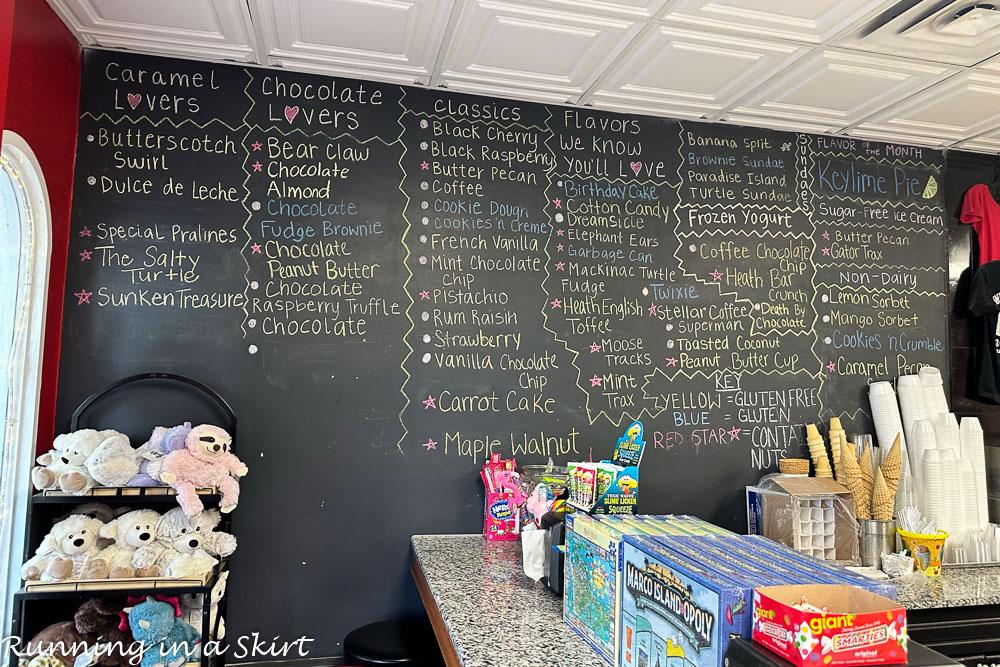 Caramel
Lovers
Butterscotch
Swirl
Dulce de Leche
Special Pralines
The Salty
Turtle
Sunken Treasure
Chocolate
Lovers
Bear Claw
Chocolate
Almond
Chocolate
Fudge Brownie
Chocolate
Peanut Butter
Chocolate
Raspberry Truffle
Chocolate
Classics
Black Cherry
Black Raspberry
Butter Pecan
Coffee
Cookie Dough
Cookies 'n Creme
French Vanilla
Mint Chocolate
Chip
Pistachio
Rum Raisin
Strawberry
Vanilla Chocolate
Chip
Carrot Cake
Maple Walnut
Flavors
We Know
You'll Love
Birthday Cake
Cotton Candy
Dreamsicle
Elephant Ears
Garbage Can
Mackinac Turtle
Fudge
Heath English
Toffee
Moose
Tracks
Mint
Trax
Sundaes
Banana Split
Brownie Sundae
Paradise Island
Turtle Sundae
Frozen Yogurt
Coffee Chocolate
Chip
Heath Bar
Crunch
Death By
Chocolate
Twixie
Stellar Coffee
Superman
Toasted Coconut
Peanut Butter Cup
KEY
YELLOW = GLUTEN FREE
BLUE = GLUTEN
RED STAR = CONTAI
NUTS
FLAVOR OF THE MONTH
Keylime Pie
Sugar-Free Ice Cream
Butter Pecan
Gator Trax
Non-Dairy
Lemon Sorbet
Mango Sorbet
Cookies 'n Crumble
Caramel Pecan
Nerds
Rope
TOXIC WASTE
SLIME LICKER
SQUEEZE
MARCO ISLAND-OPOLY
giant
giant
SMARTIES
original
Running in a Skirt